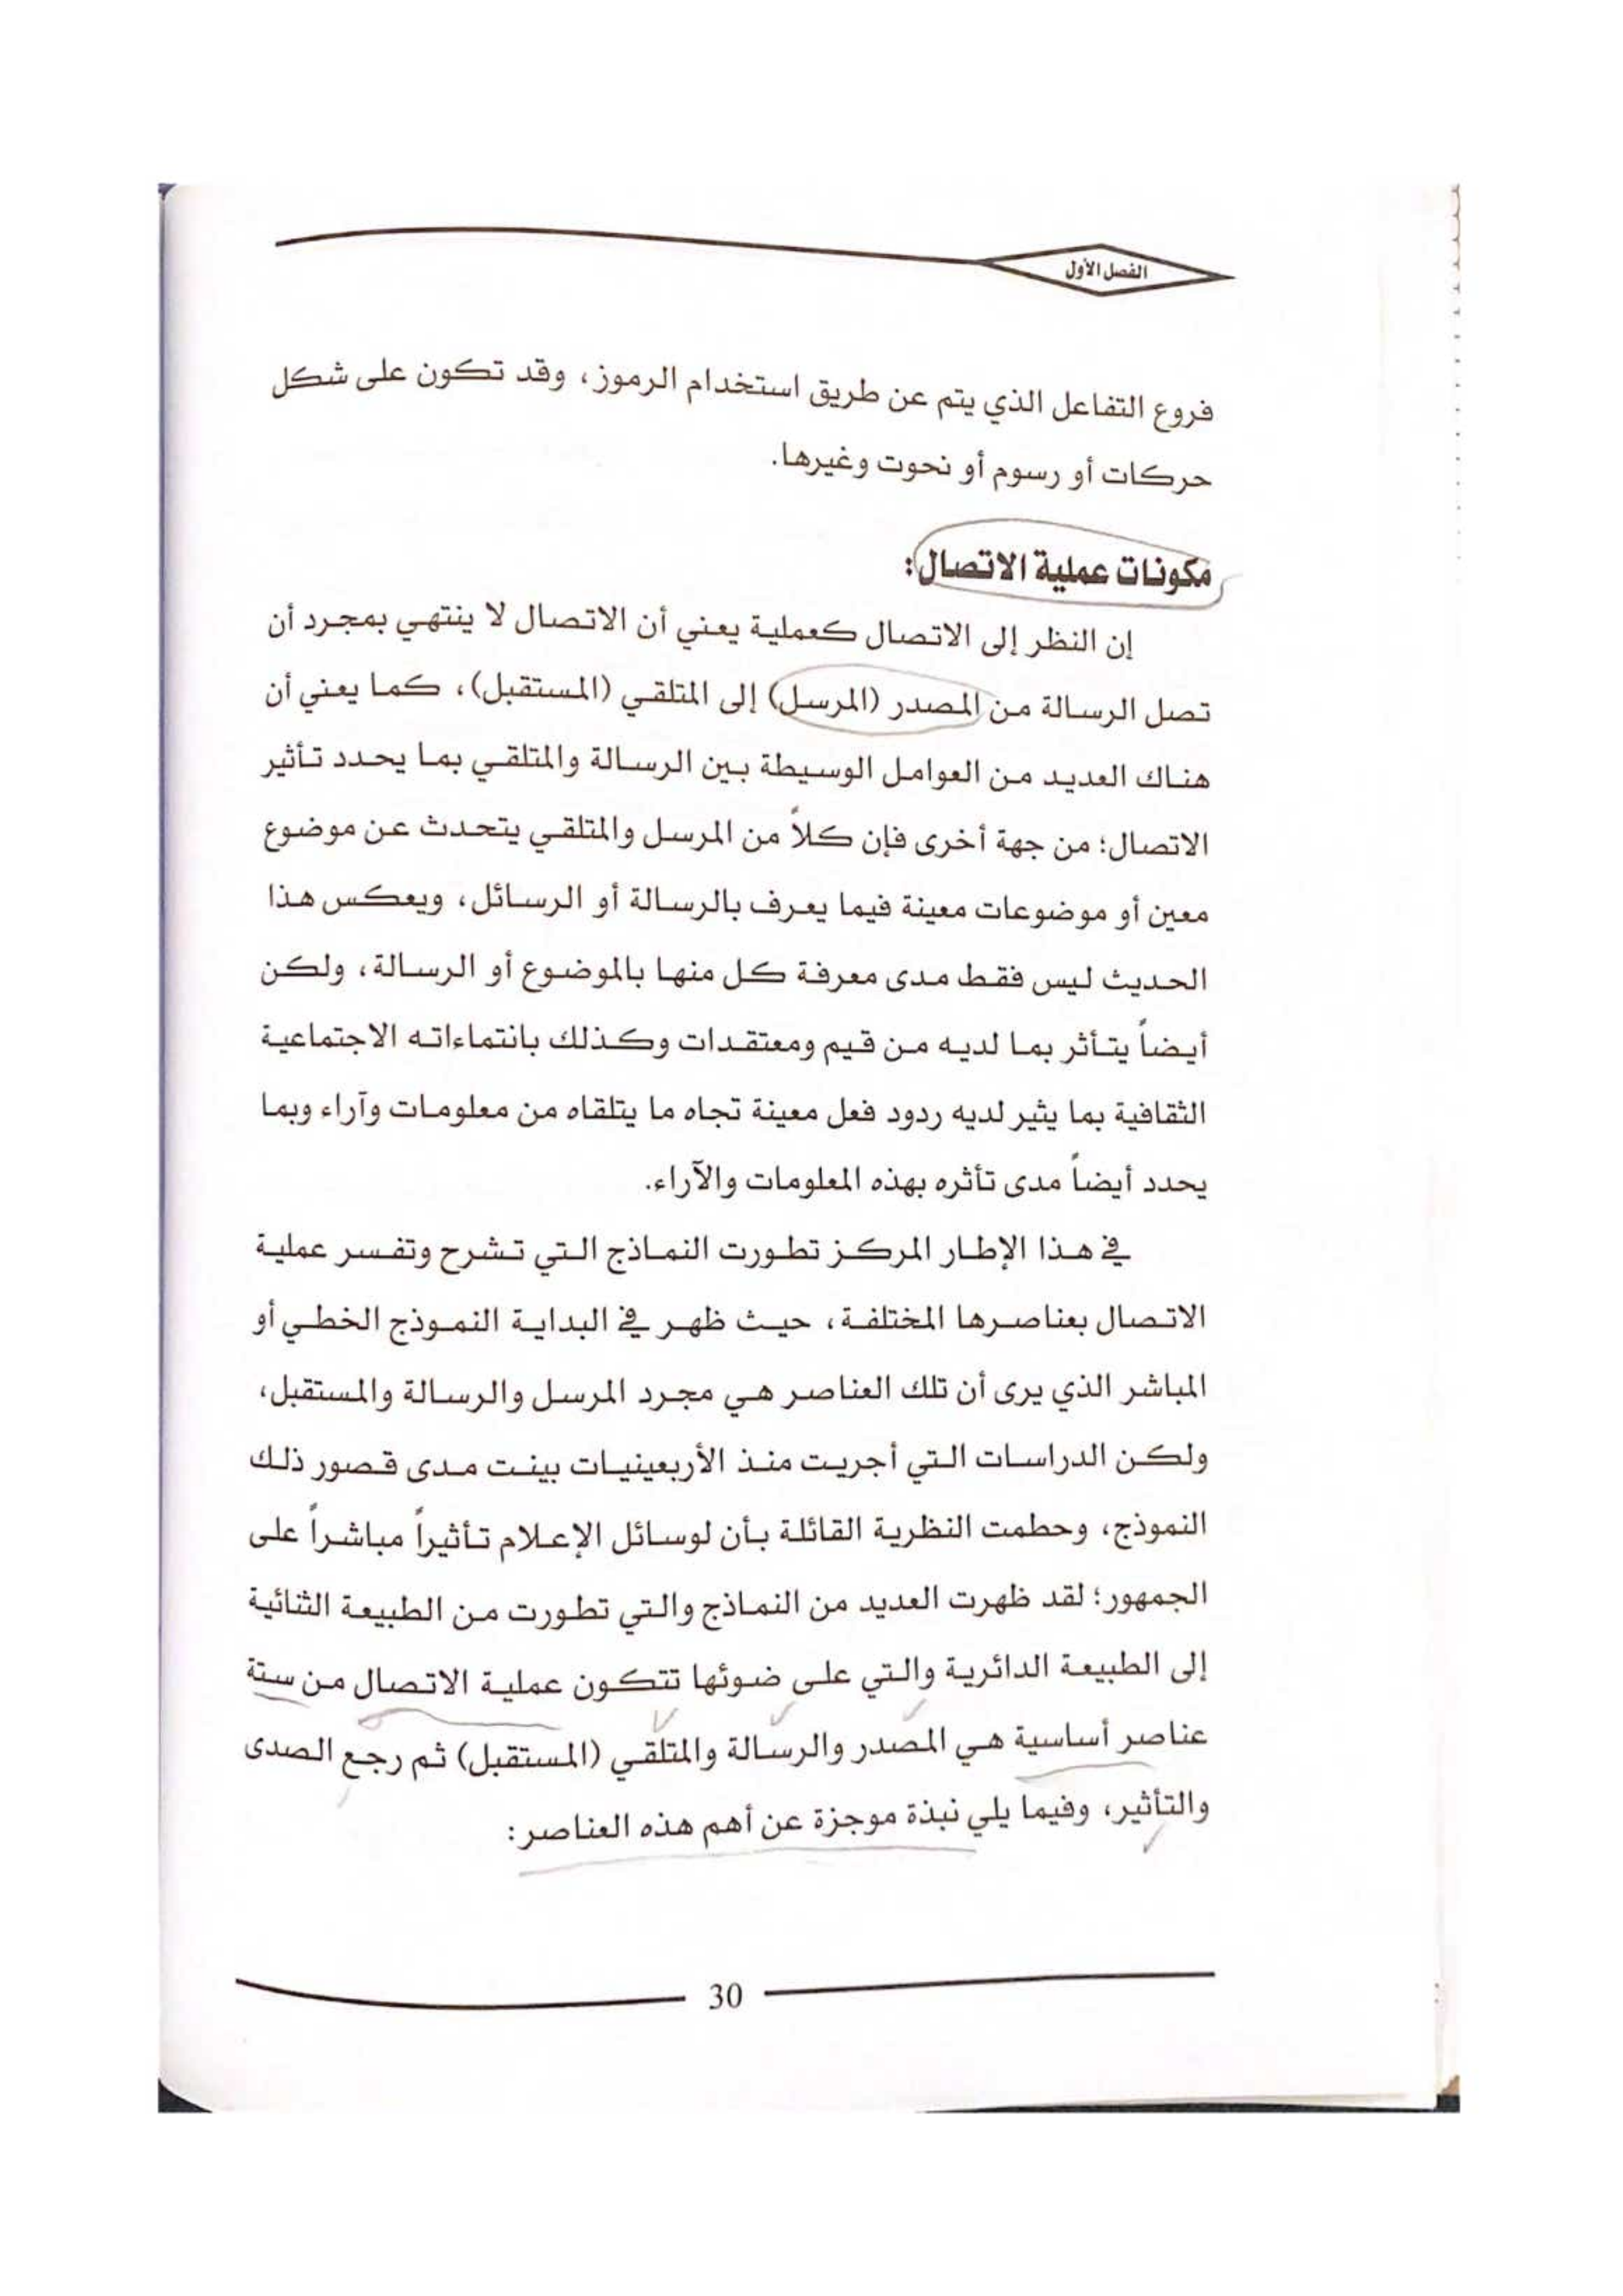 الفصل الأول
فروع التفاعل الذي يتم عن طريق استخدام الرموز، وقد تكون على شكل
حركات أو رسوم أو نحوت وغيرها.
مكونات عملية الاتصال:
إن النظر إلى الاتصال كعملية يعني أن الاتصال لا ينتهي بمجرد أن
تصل الرسالة من المصدر (المرسل) إلى المتلقي (المستقبل)، كما يعني أن
هناك العديد من العوامل الوسيطة بين الرسالة والمتلقي بما يحدد تأثير
الاتصال؛ من جهة أخرى فإن كلاً من المرسل والمتلقي يتحدث عن موضوع
معين أو موضوعات معينة فيما يعرف بالرسالة أو الرسائل، ويعكس هذا
الحديث ليس فقط مدى معرفة كل منها بالموضوع أو الرسالة، ولكن
أيضاً يتأثر بما لديه من قيم ومعتقدات وكذلك بانتماءاته الاجتماعية
الثقافية بما يثير لديه ردود فعل معينة تجاه ما يتلقاه من معلومات وآراء وبما
يحدد أيضاً مدى تأثره بهذه المعلومات والآراء.
في هذا الإطار المركز تطورت النماذج التي تشرح وتفسر عملية
الاتصال بعناصرها المختلفة، حيث ظهر في البداية النموذج الخطي أو
المباشر الذي يرى أن تلك العناصر هي مجرد المرسل والرسالة والمستقبل،
ولكن الدراسات التي أجريت منذ الأربعينيات بينت مدى قصور ذلك
النموذج، وحطمت النظرية القائلة بأن لوسائل الإعلام تأثيراً مباشراً على
الجمهور؛ لقد ظهرت العديد من النماذج والتي تطورت من الطبيعة الثنائية
إلى الطبيعة الدائرية والتي على ضوئها تتكون عملية الاتصال من ستة
عناصر أساسية هي المصدر والرسالة والمتلقي (المستقبل) ثم رجع الصدى
والتأثير، وفيما يلي نبذة موجزة عن أهم هذه العناصر:
30